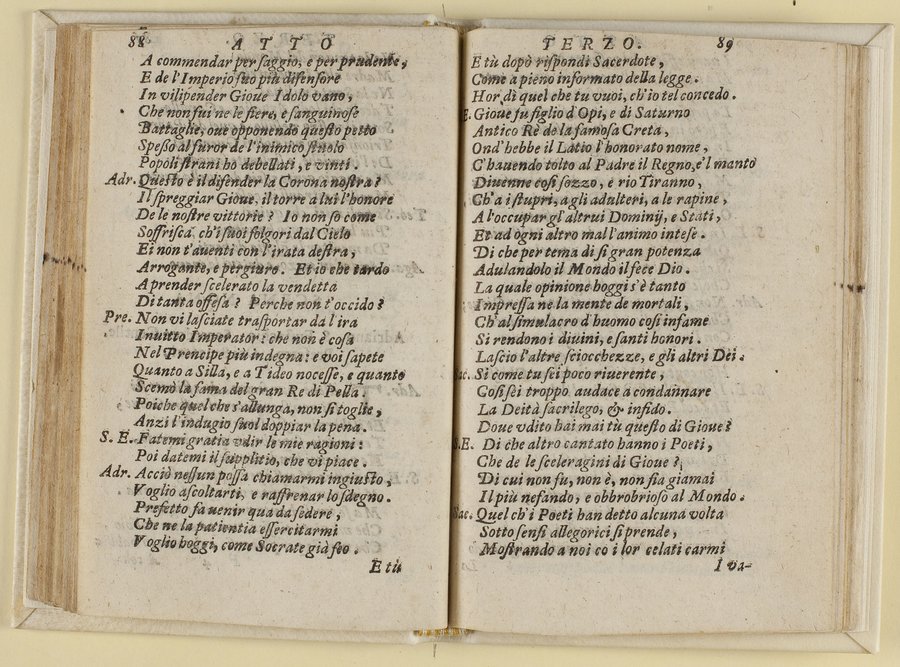 88 ATTO
A commendar per ſaggio, e per prudente,
E de l'Imperio ſuo più difenſore
In vilipender Gioue Idolo vano,
Che non fui ne le fiere, e ſanguinoſe
Battaglie, oue opponendo queſto petto
Speßo al furor de l'inimico ſtuolo
Popoli ſtrani hò debellati, e vinti.
Adr. Queſto è il difender la Corona noſtra?
Il ſpreggiar Gioue, il torre a lui l'honore
De le noſtre vittorie? Io non ſo come
Soffriſca, ch'i ſuoi folgori dal Cielo
Ei non t'auenti con l'irata deſtra,
Arrogante, e pergiuro. Et io che tardo
A prender ſcelerato la vendetta
Di tanta offeſa? Perche non t'occido?
Pre. Non vi laſciate traſportar da l'ira
Inuitto Imperator: che non è coſa
Nel Prencipe più indegna: e voi ſapete
Quanto a Silla, e a Tideo noceſſe, e quanto
Scemò la fama del gran Re di Pella.
Poiche quel che s'allunga, non ſi toglie,
Anzi l'indugio ſuol doppiar la pena.
S. E. Fatemi gratia vdir le mie ragioni:
Poi datemi il ſupplitio, che vi piace.
Adr. Acciò neſſun poſſa chiamarmi ingiuſto,
Voglio aſcoltarti, e raffrenar lo ſdegno.
Prefetto fa uenir qua da ſedere,
Che ne la patientia eſſercitarmi
Voglio hoggi, come Socrate già feo.
E tù
TERZO. 89
E tù dopò riſpondi Sacerdote,
Come a pieno informato della legge.
Hor dì quel che tu vuoi, ch'io tel concedo.
E. Gioue fu figlio d'Opi, e di Saturno
Antico Rè de la famoſa Creta,
Ond'hebbe il Latio l'honorato nome,
C'hauendo tolto al Padre il Regno, e'l manto
Diuenne coſi ſozzo, e rio Tiranno,
Ch'a i ſtupri, a gli adulteri, a le rapine,
A l'occupar gl'altrui Dominij, e Stati,
Et ad ogni altro mal l'animo inteſe.
Di che per tema di ſi gran potenza
Adulandolo il Mondo il fece Dio.
La quale opinione hoggi s'è tanto
Impreſſa ne la mente de mortali,
Ch'al ſimulacro d'huomo coſi infame
Si rendono i diuini, e ſanti honori.
Laſcio l'altre ſciocchezze, e gli altri Dei.
Sac. Si come tu ſei poco riuerente,
Coſi ſei troppo audace a condannare
La Deità ſacrilego, & infido.
Doue vdito hai mai tù queſto di Gioue?
S.E. Di che altro cantato hanno i Poeti,
Che de le ſceleragini di Gioue?
Di cui non fu, non è, non fia giamai
Il più nefando, e obbrobrioſo al Mondo.
Sac. Quel ch'i Poeti han detto alcuna volta
Sotto ſenſi allegorici ſi prende,
Moſtrando a noi co i lor celati carmi
I va-